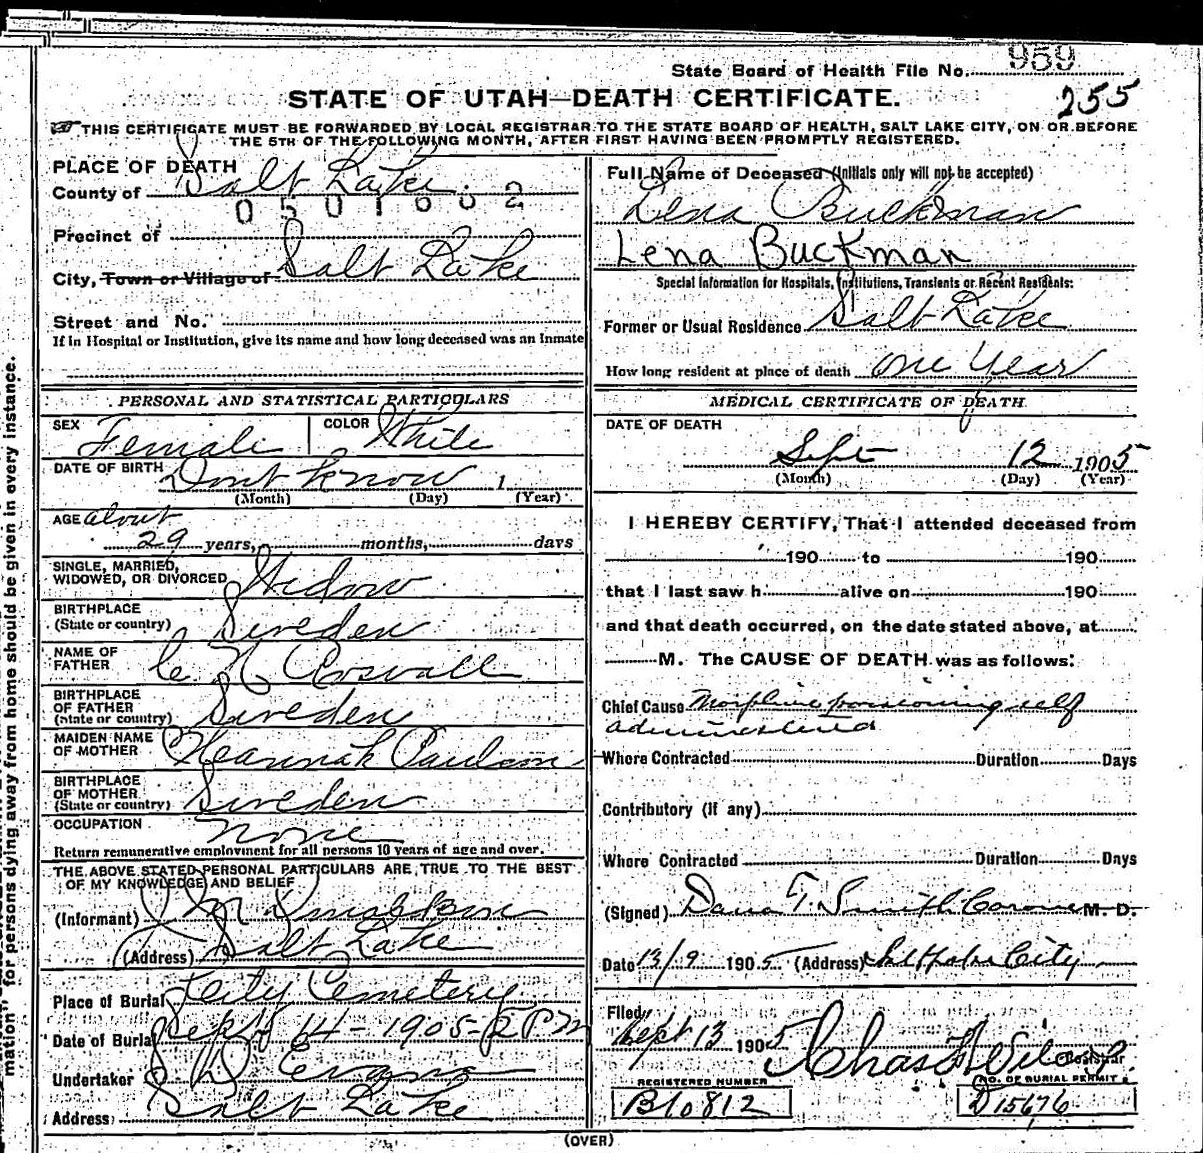 State Board of Health File No. 959
255
STATE OF UTAH—DEATH CERTIFICATE.
THIS CERTIFICATE MUST BE FORWARDED BY LOCAL REGISTRAR TO THE STATE BOARD OF HEALTH, SALT LAKE CITY, ON OR BEFORE
THE 5TH OF THE FOLLOWING MONTH, AFTER FIRST HAVING BEEN PROMPTLY REGISTERED.
PLACE OF DEATH
County of Salt Lake.
Precinct of
City, Town or Village of Salt Lake
Street and No.
If in Hospital or Institution, give its name and how long deceased was an Inmate
PERSONAL AND STATISTICAL PARTICULARS
SEX Female COLOR White
DATE OF BIRTH Dont know 1
(Month) (Day) (Year)
AGE about
29 years, months, days
SINGLE, MARRIED,
WIDOWED, OR DIVORCED Widow
BIRTHPLACE
(State or country) Sweden
NAME OF
FATHER C N
BIRTHPLACE
OF FATHER
(State or country) Sweden
MAIDEN NAME
OF MOTHER Hannah
BIRTHPLACE
OF MOTHER
(State or country) Sweden
OCCUPATION None
Return remunerative employment for all persons 10 years of age and over.
THE ABOVE STATED PERSONAL PARTICULARS ARE TRUE TO THE BEST
OF MY KNOWLEDGE AND BELIEF
(Informant)
(Address) Salt Lake
Place of Burial City Cemetery
Date of Burial Sept 14 - 1905 - 2 PM
Undertaker Evans
Address: Salt Lake
Full Name of Deceased (Initials only will not be accepted)
Lena Buckman
Lena Buckman
Special Information for Hospitals, Institutions, Transients or Recent Residents:
Former or Usual Residence Salt Lake
How long resident at place of death one Year
MEDICAL CERTIFICATE OF DEATH
DATE OF DEATH
Sept 12 1905
(Month) (Day) (Year)
I HEREBY CERTIFY, That I attended deceased from
190 to 190
that I last saw h alive on 190
and that death occurred, on the date stated above, at
M. The CAUSE OF DEATH was as follows:
Chief Cause Morphine poisoning self
administered
Where Contracted Duration Days
Contributory (if any)
Where Contracted Duration Days
(Signed) Dana T. Smith Coroner M. D.
Date 13/9 1905 (Address) Salt Lake City
Filed
Sept 13 1905 Chas Wilcox
Registrar
REGISTERED NUMBER
B10812
NO. OF BURIAL PERMIT
D15676
(OVER)
mation" for persons dying away from home should be given in every instance.